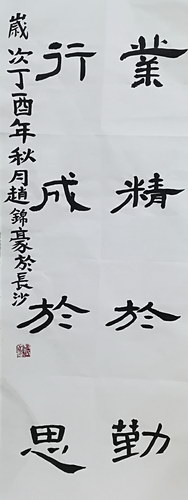 業精於勤
行成於思
歲次丁酉年秋月趙錦豪於長沙